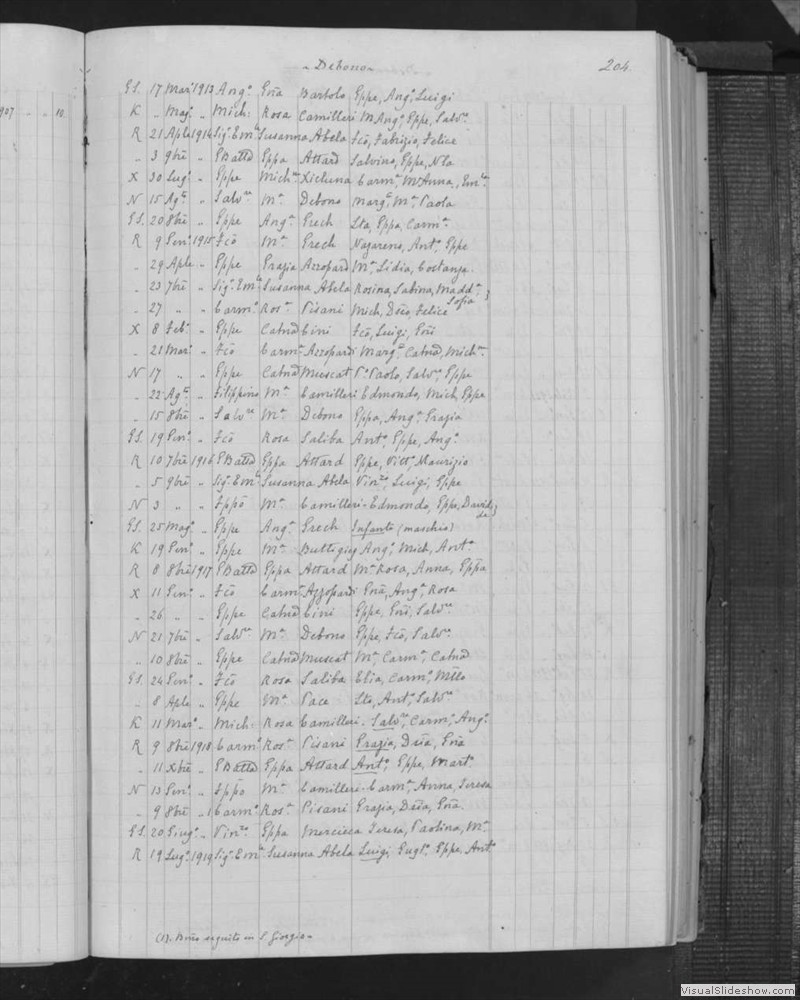 - Debono -
204.
GS. 17 Mar. 1913 Ang.o Gña Bartolo Gppe, Ang.o Luigi
K „ Mag.o „ Mich. Rosa Camilleri M Ang.a Gppe, Salv.e
R 21 Aple 1914 Sig. Em.le Susanna Abela Fcõ, Fabrizio, Felice
„ 3 9bre „ GBatta Gppa Attard Salvino, Gppe, Nla
X 30 Lug.o „ Gppe Mich.a Xicluna Carm.a, M Anna, Em.la
N 15 Ag.to „ Salv.re M.a Debono Marg.a M.a Paola
GS. 20 8bre „ Gppe Ang.a Grech Sta, Gppa, Carm.a
R 9 Gen.o 1915 Fcõ M.a Grech Nazareno, Ant.o Gppe
„ 29 Aple „ Gppe Grazia Azzopard M.a Lidia, Costanza.
„ 23 7bre „ Sig. Em.le Susanna Abela Rosina, Sabina, Madd.a Sofia
„ 27 „ „ Carm.o Ros.a Pisani Mich, Dẽo, Felice
X 8 Feb.o „ Gppe Catnã Cini Fcõ, Luigi, Gñi
„ 21 Mar. „ Fcõ Carm.a Azzopardi Marg.a Catnã, Mich.a
N 17 „ „ Gppe Catnã Muscat P. Paolo, Salv.e Gppe
„ 22 Ag.to „ Filippino M.a Camilleri Edmondo, Mich, Gppe
„ 15 8bre „ Salv.re M.a Debono Gppa, Ang.a Grazia
GS. 19 Gen.o „ Fcõ Rosa Saliba Ant.o, Gppe, Ang.o
R 10 7bre 1916 GBatta Gppa Attard Gppe, Vitt.o Maurizio
„ 5 9bre „ Sig. Em.le Susanna Abela Vin.zo, Luigi, Gppe
N 3 „ „ Fppõ M.a Camilleri - Edmondo, Gppe, Davidde
GS. 25 Mag.o „ Gppe Ang.a Grech Infante (maschio)
K 19 Gen.o „ Gppe M.a Buttigieg Ang.o Mich, Ant.o
R 8 8bre 1917 GBatta Gppa Attard M.a Rosa, Anna, Gppa
X 11 Gen.o „ Fcõ Carm.a Azzopardi Gña, Ang.a, Rosa
„ 26 „ „ Gppe Catnã Cini Gppe, Gñi, Salv.re
N 21 7bre „ Salv.re M.a Debono Gppe, Fcõ, Salv.e
„ 10 8bre „ Gppe Catnã Muscat M.a Carm.a Catnã
GS. 24 Gen.o „ Fcõ Rosa Saliba Elia, Carm.o Mllo
„ 8 Aple „ Gppe M.a Pace Sto, Ant.o Salv.e
K 11 Mar.o „ Mich. Rosa Camilleri - Salv.re, Carm.o, Ang.o
R 9 8bre 1918 Carm.o Ros.a Pisani Grazia, Dña, Gña
„ 11 Xbre „ GBatta Gppa Attard Ant.o, Gppe, Mart.o
N 13 Gen.o „ Fppõ M.a Camilleri - Carm.a, Anna, Teresa
„ 9 8bre „ Carm.o Ros.a Pisani Grazia, Dña, Gña.
GS. 20 Giug.o „ Vin.zo Gppa Mercieca Teresa, Paolina, M.a
R 19 Lug.o 1919 Sig. Em.le Susanna Abela Luigi, Eug.o Gppe, Ant.o
seguito in S Giorgio -
VisualSlideshow.com